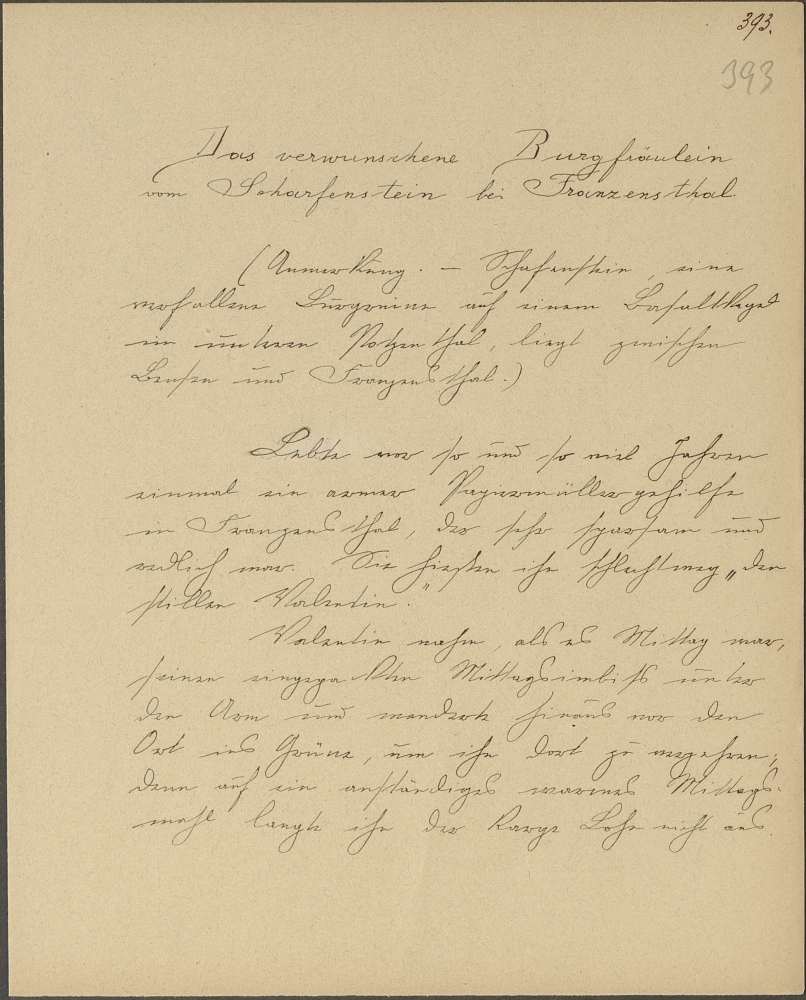 393.
393
Das verwunschene Burgfräulein
vom Scharfenstein bei Franzensthal.
(Anmerkung. – Schafenstein, eine
verfallene Burgruine auf einem Basaltkegel
im unteren Polzenthal, liegt zwischen
Bensen und Franzensthal.)
Lebte vor so und so viel Jahren
einmal ein armer Papiermüllergehilfe
in Franzensthal, der sehr sparsam und
redlich war. Sie hießen ihn schlechtweg „den
stillen Valentin."
Valentin nahm, als es Mittag war,
seinen eingepackten Mittagsimbiß unter
den Arm und wanderte hinaus vor den
Ort ins Grüne, um ihn dort zu verzehren;
denn auf ein anständiges warmes Mittags-
mahl langte ihn der karge Lohn nicht aus.